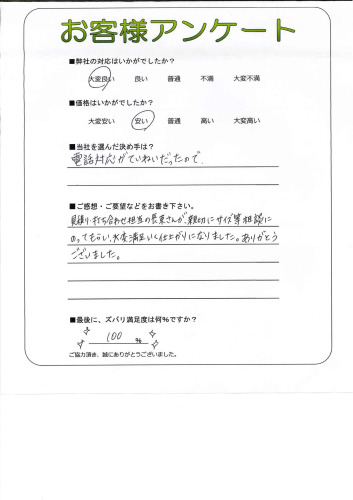 お客様アンケート
■弊社の対応はいかがでしたか?
大変良い 良い 普通 不満 大変不満
■価格はいかがでしたか?
大変安い 安い 普通 高い 大変高い
■当社を選んだ決め手は?
電話対応がていねいだったので.
■ご感想・ご要望などをお書き下さい。
見積り・打ち合わせ担当の さんが、親切にサイズ等相談に
のってもらい、大変満足いく仕上がりになりました。ありがとう
ございました。
■最後に、ズバリ満足度は何%ですか?
100 %
ご協力頂き、誠にありがとうございました。